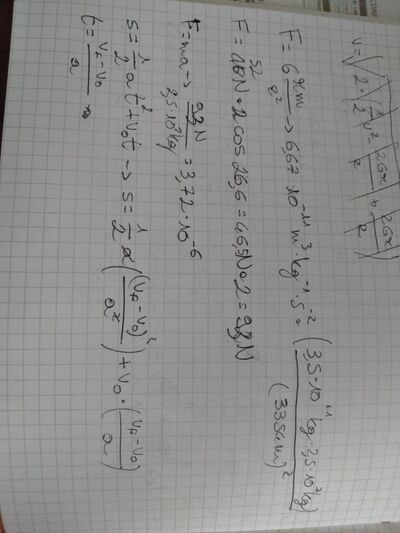 V = √(2·(1/2 v² - 2Gx/r + 2Gx/r))
F = G xm/r² → 6,67·10⁻¹¹ m³·kg⁻¹·s⁻² · (3,5·10¹¹ kg·2,5·10⁷ kg)/(335 m)²
F = 52 N·2 cos 26,6 = 46,5 N·2 = 93 N
F = ma → 93 N/2,5·10⁷ kg = 3,72·10⁻⁶
s = 1/2 at² + v₀t → s = 1/2 a ((v_k - v₀)²/a²) + v₀·((v_k - v₀)/a)
t = v_k - v₀/a